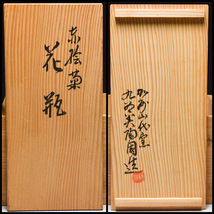 赤絵菊
花瓶
加州山代窯
九谷美陶園造